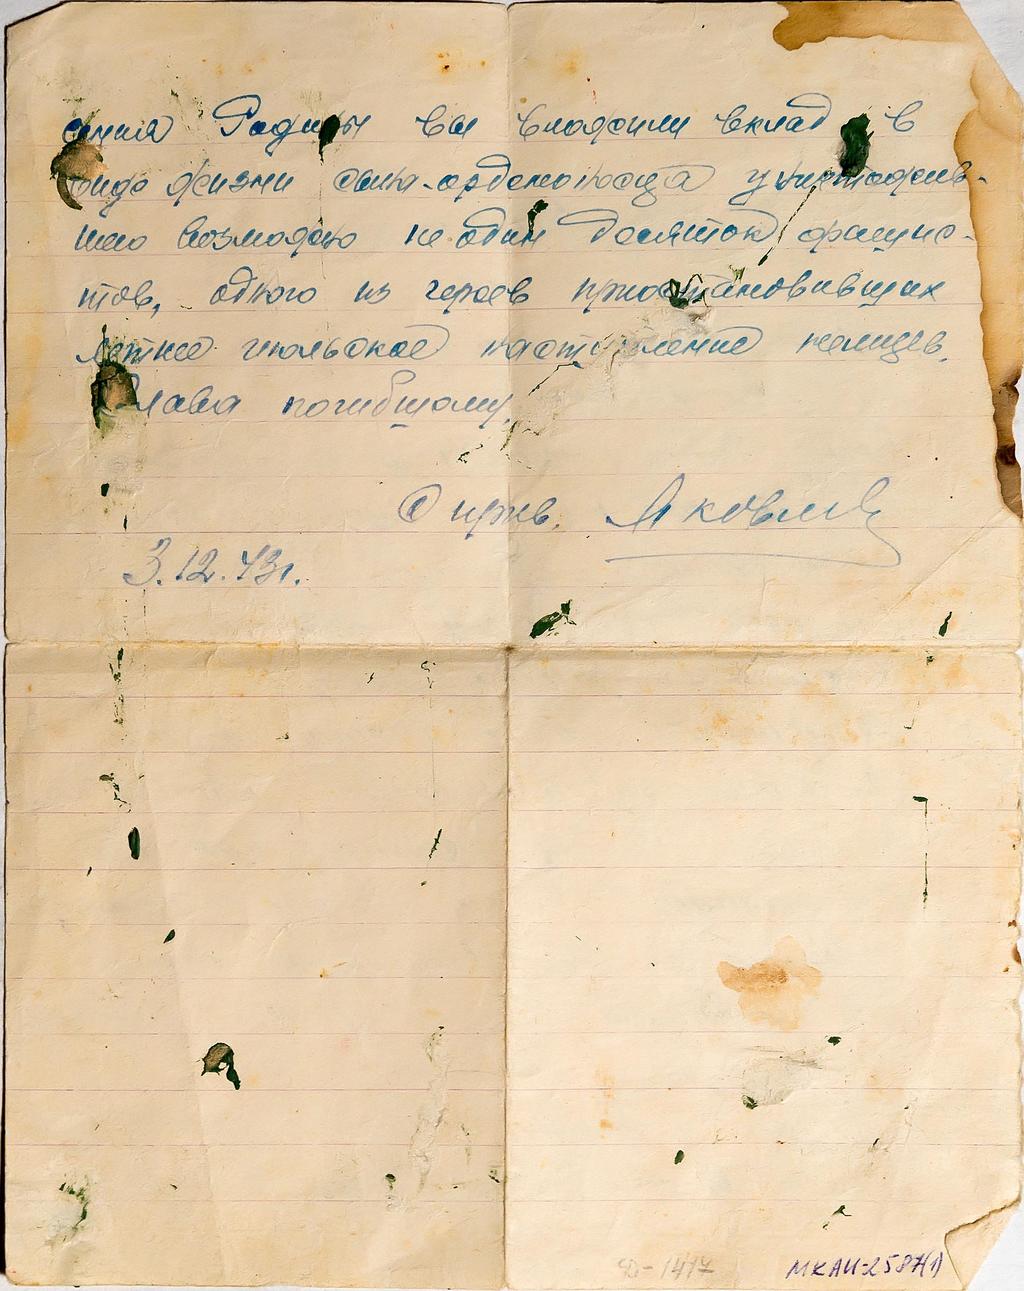 сения Родины вы вложили вклад в
виде жизни сына-орденоносца уничтожив-
шего возможно не один десяток фашис-
тов, одного из героев приостановивших
летнее июльское наступление немцев.
Слава погибшему.
С прив. Яковлев
3.12.43г.
Ф-1417
МКАИ-2587(1)